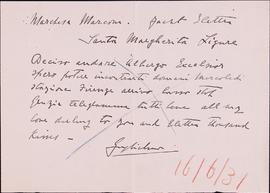 Marchesa Marconi. Yacht Elettra
Santa Margherita Ligure
Deciso andare Albergo Excelsior
spero poter incontrarti domani mercoledi
stazione Firenze arrivo
Grazie telegramma tutto love all my
love darling to you and Elettra thousand
kisses –
Guglielmo
16/6/31